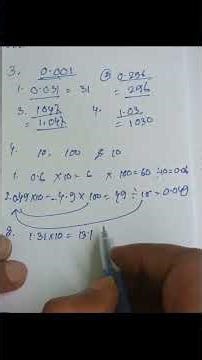 3. 0.001
1. 0.031 = 31 ② 0.296 = 296
3. 1047 = 1.047 4. 1.03 = 1030
4. 10 100 & 10
1. 0.6 ×10 = 6 × 100 = 60
2. 049×10 = 4.9 × 100 = 49 ÷ 10 = 0.049
2. 1.31×10 = 13.1